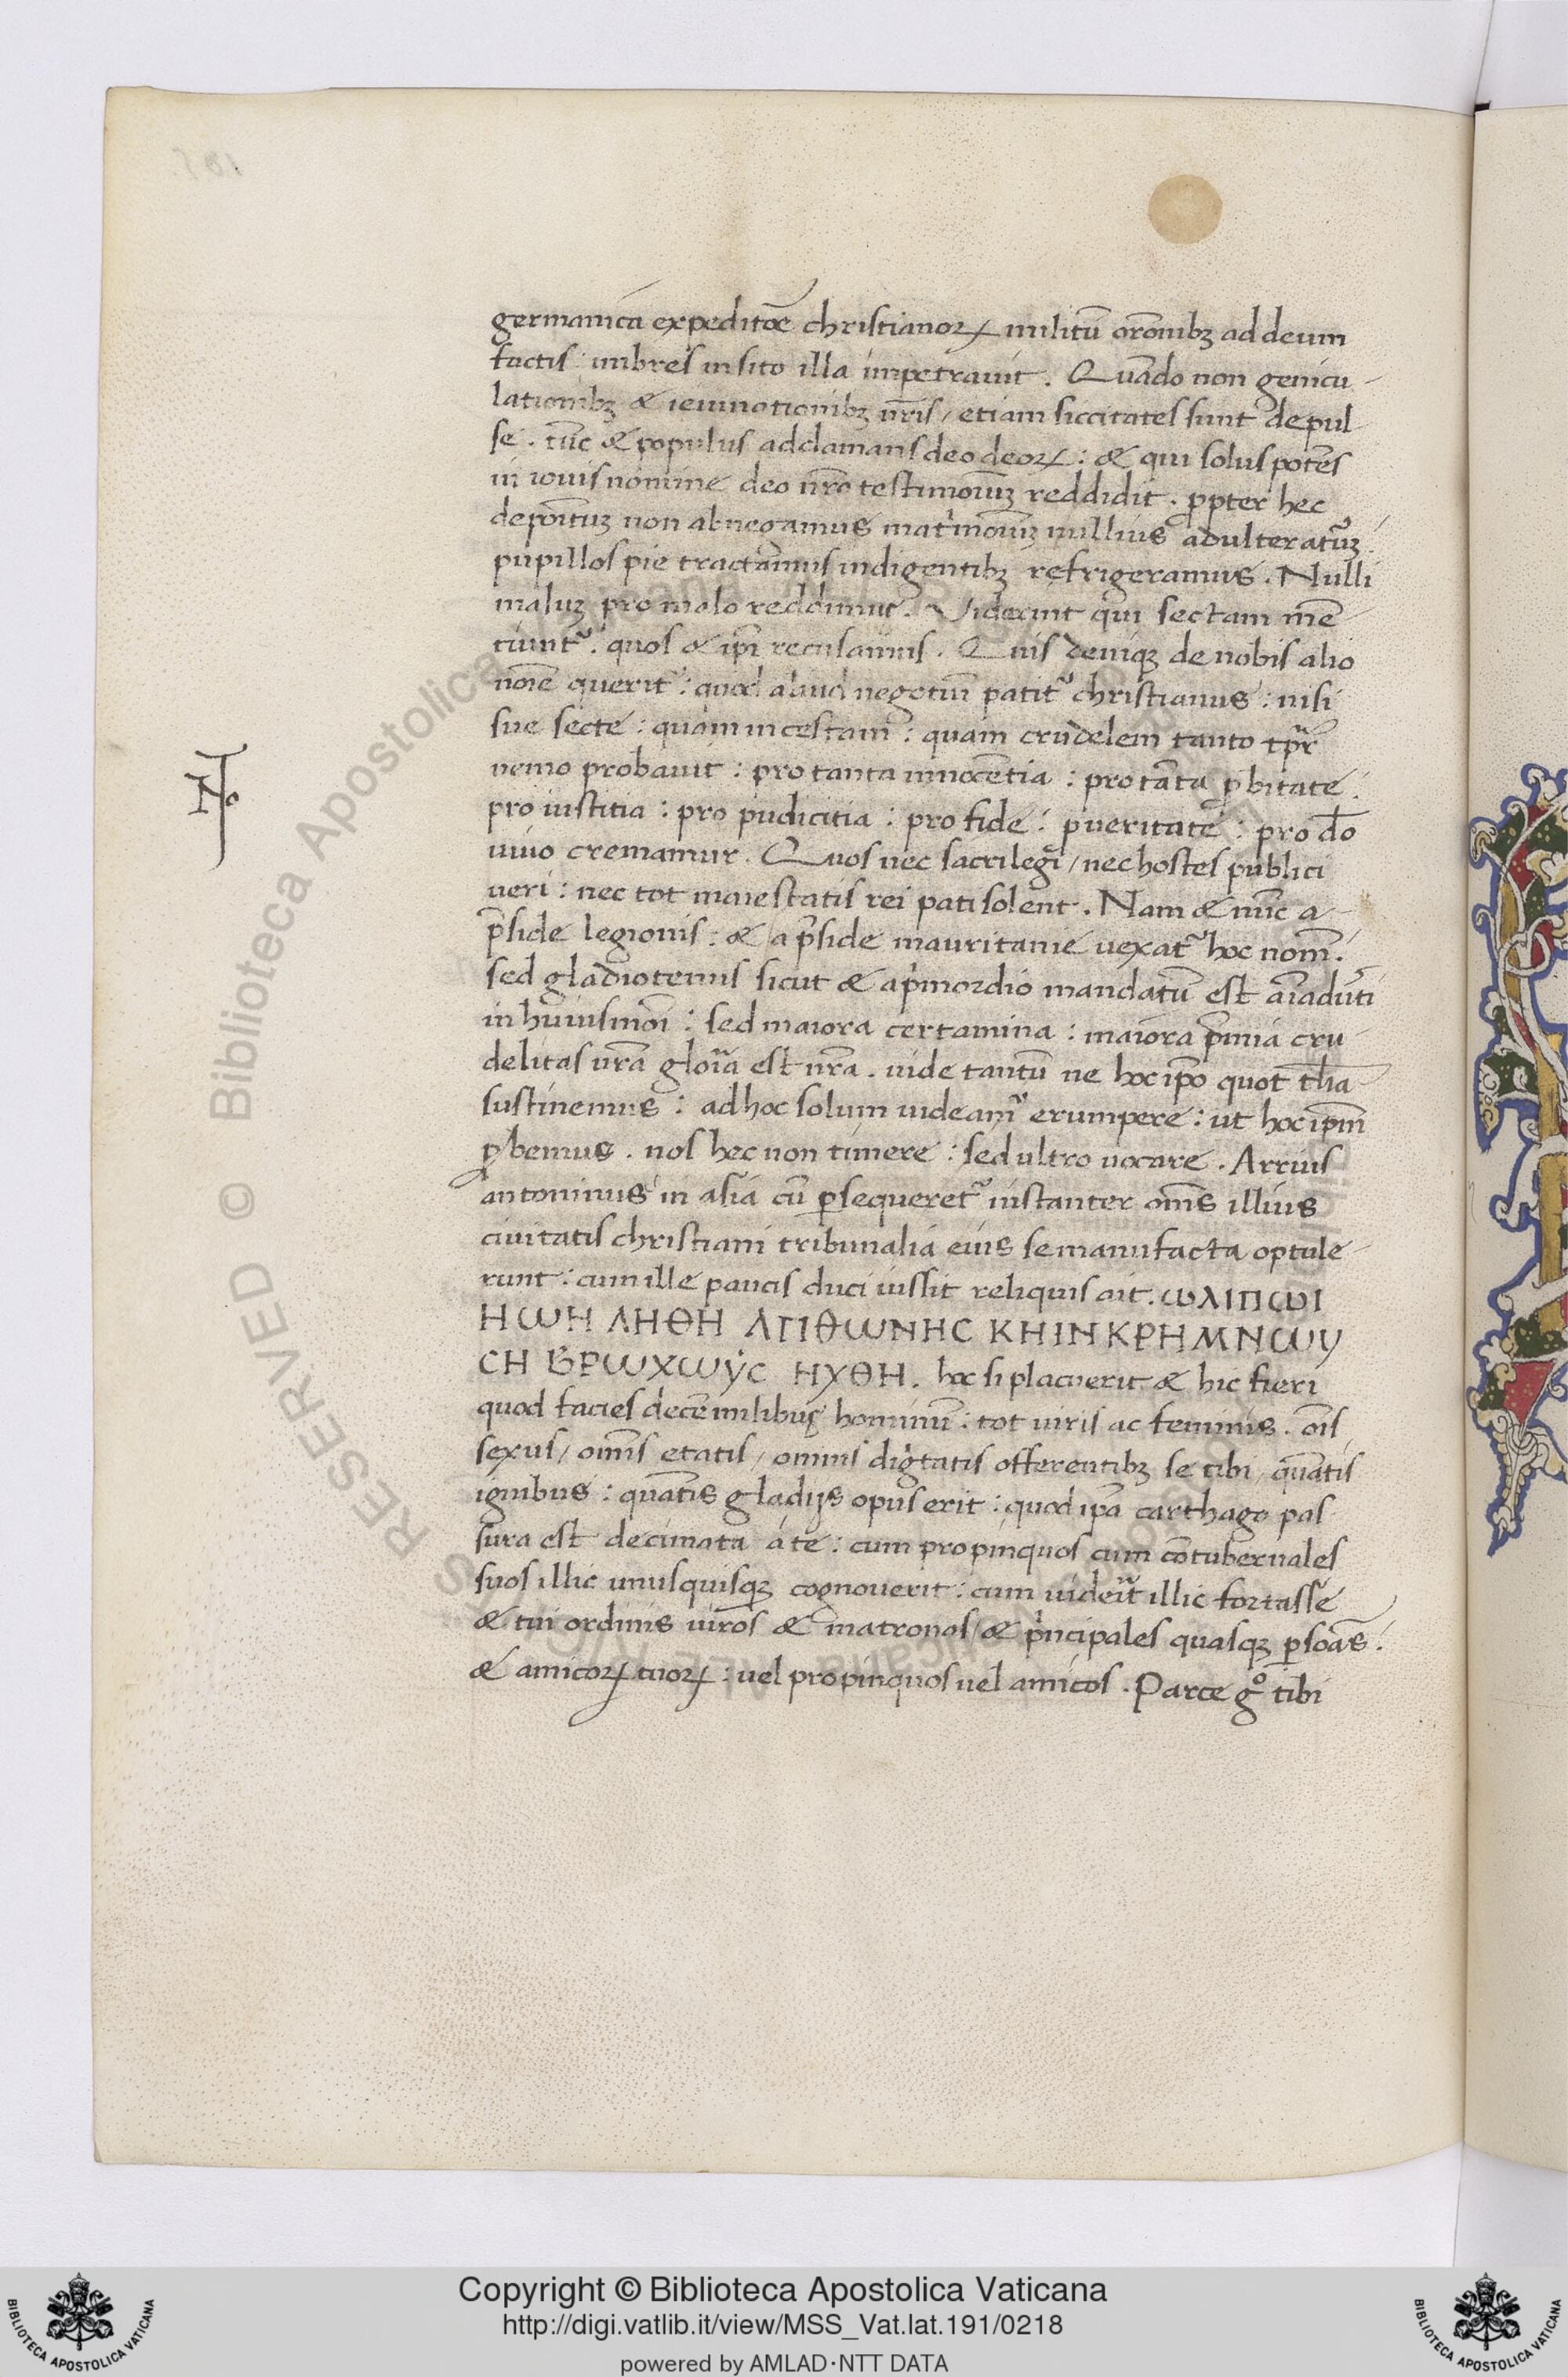 germanica expeditōe christianoꝝ militū orōnibꝫ ad deum
factis: imbres in sito illa impetrauit. Quādo non genicu-
lationibꝫ & ieiunationibꝫ nr̄is / etiam siccitates sunt depul-
se. tūc & populus adclamans deo deoꝝ: & qui solus potēs
in iouis nomine deo nr̄o testimoīuꝫ reddidit. ꝓpter hec
depoītuꝫ non abnegamus matⁱmoīuꝫ nullius adulteratūꝫ.
pupillos pie tractāmus indigentibꝫ refrigeramus. Nulli
maluꝫ pro malo reddimus. Viderint qui sectam mē-
tiuntᷣ. quos & ip̄i recusamus. Quis deniqꝫ de nobis alio
noīe querit: quod aliud negotiū patitᷣ christianus: nisi
sue secte: quam incestam: quam crudelem tanto tp̄r
nemo probauit: pro tanta innocētia: pro tāta ꝓbitate:
pro iustitia: pro pudicitia: pro fide: ꝓ ueritate: pro d̄o
uiuo cremamur. Quos nec sacrilegi / nec hostes publici
ueri: nec tot maiestatis rei pati solent. Nam & nūc a
p̄side legionis: & a p̄side mauritanie uexatᷣ hoc nom̄.
sed gladiotenus sicut & a pⁱmordio mandatū est aīaduti
in huiusmōi: sed maiora certamina: maiora p̄mia cru
delitas ur̄a gloīa est nr̄a. uide tantū ne hoc ip̄o quot t̄lia
sustinemus: ad hoc solum uideamᷣ erumpere: ut hoc ip̄m
ꝓbemus. nos hec non timere: sed ultro uocare. Arrius
antoninus in asia cū ꝑsequeretᷣ instanter om̄s illius
ciuitatis christiani tribunalia eius se manu facta optule-
runt: cum ille paucis duci iussit reliquis ait. ωλιπωι
ΗωΗ ΛΗΘΗ ΛΓΙΘωΝΗC ΚΗΙΝ ΚΡΗΜΝωy
CΗ ΒΡωΧωyC ΗΧΘΗ. hoc si placuerit & hic fieri
quod facies decē milibus hominū: tot uiris ac feminis. oīs
sexus / om̄s etatis / omnis digⁱtatis offerentibꝫ se tibi / quātis
ignibus: quātis gladijs opus erit: quod ip̄a carthago pas
sura est decimata a te: cum propinquos cum cōtubernales
suos illic unusquisqꝫ cognouerit: cum uideīt illic fortasse
& tui ordinis uiros & matronas / & pⁱncipales quasqꝫ ꝑsoās.
& amicoꝝ tuoꝝ: uel propinquos uel amicos. Parce gᵒ tibi
No
Copyright © Biblioteca Apostolica Vaticana
http://digi.vatlib.it/view/MSS_Vat.lat.191/0218
powered by AMLAD·NTT DATA
BIBLIOTECA APOSTOLICA VATICANA
BIBLIOTECA APOSTOLICA VATICANA